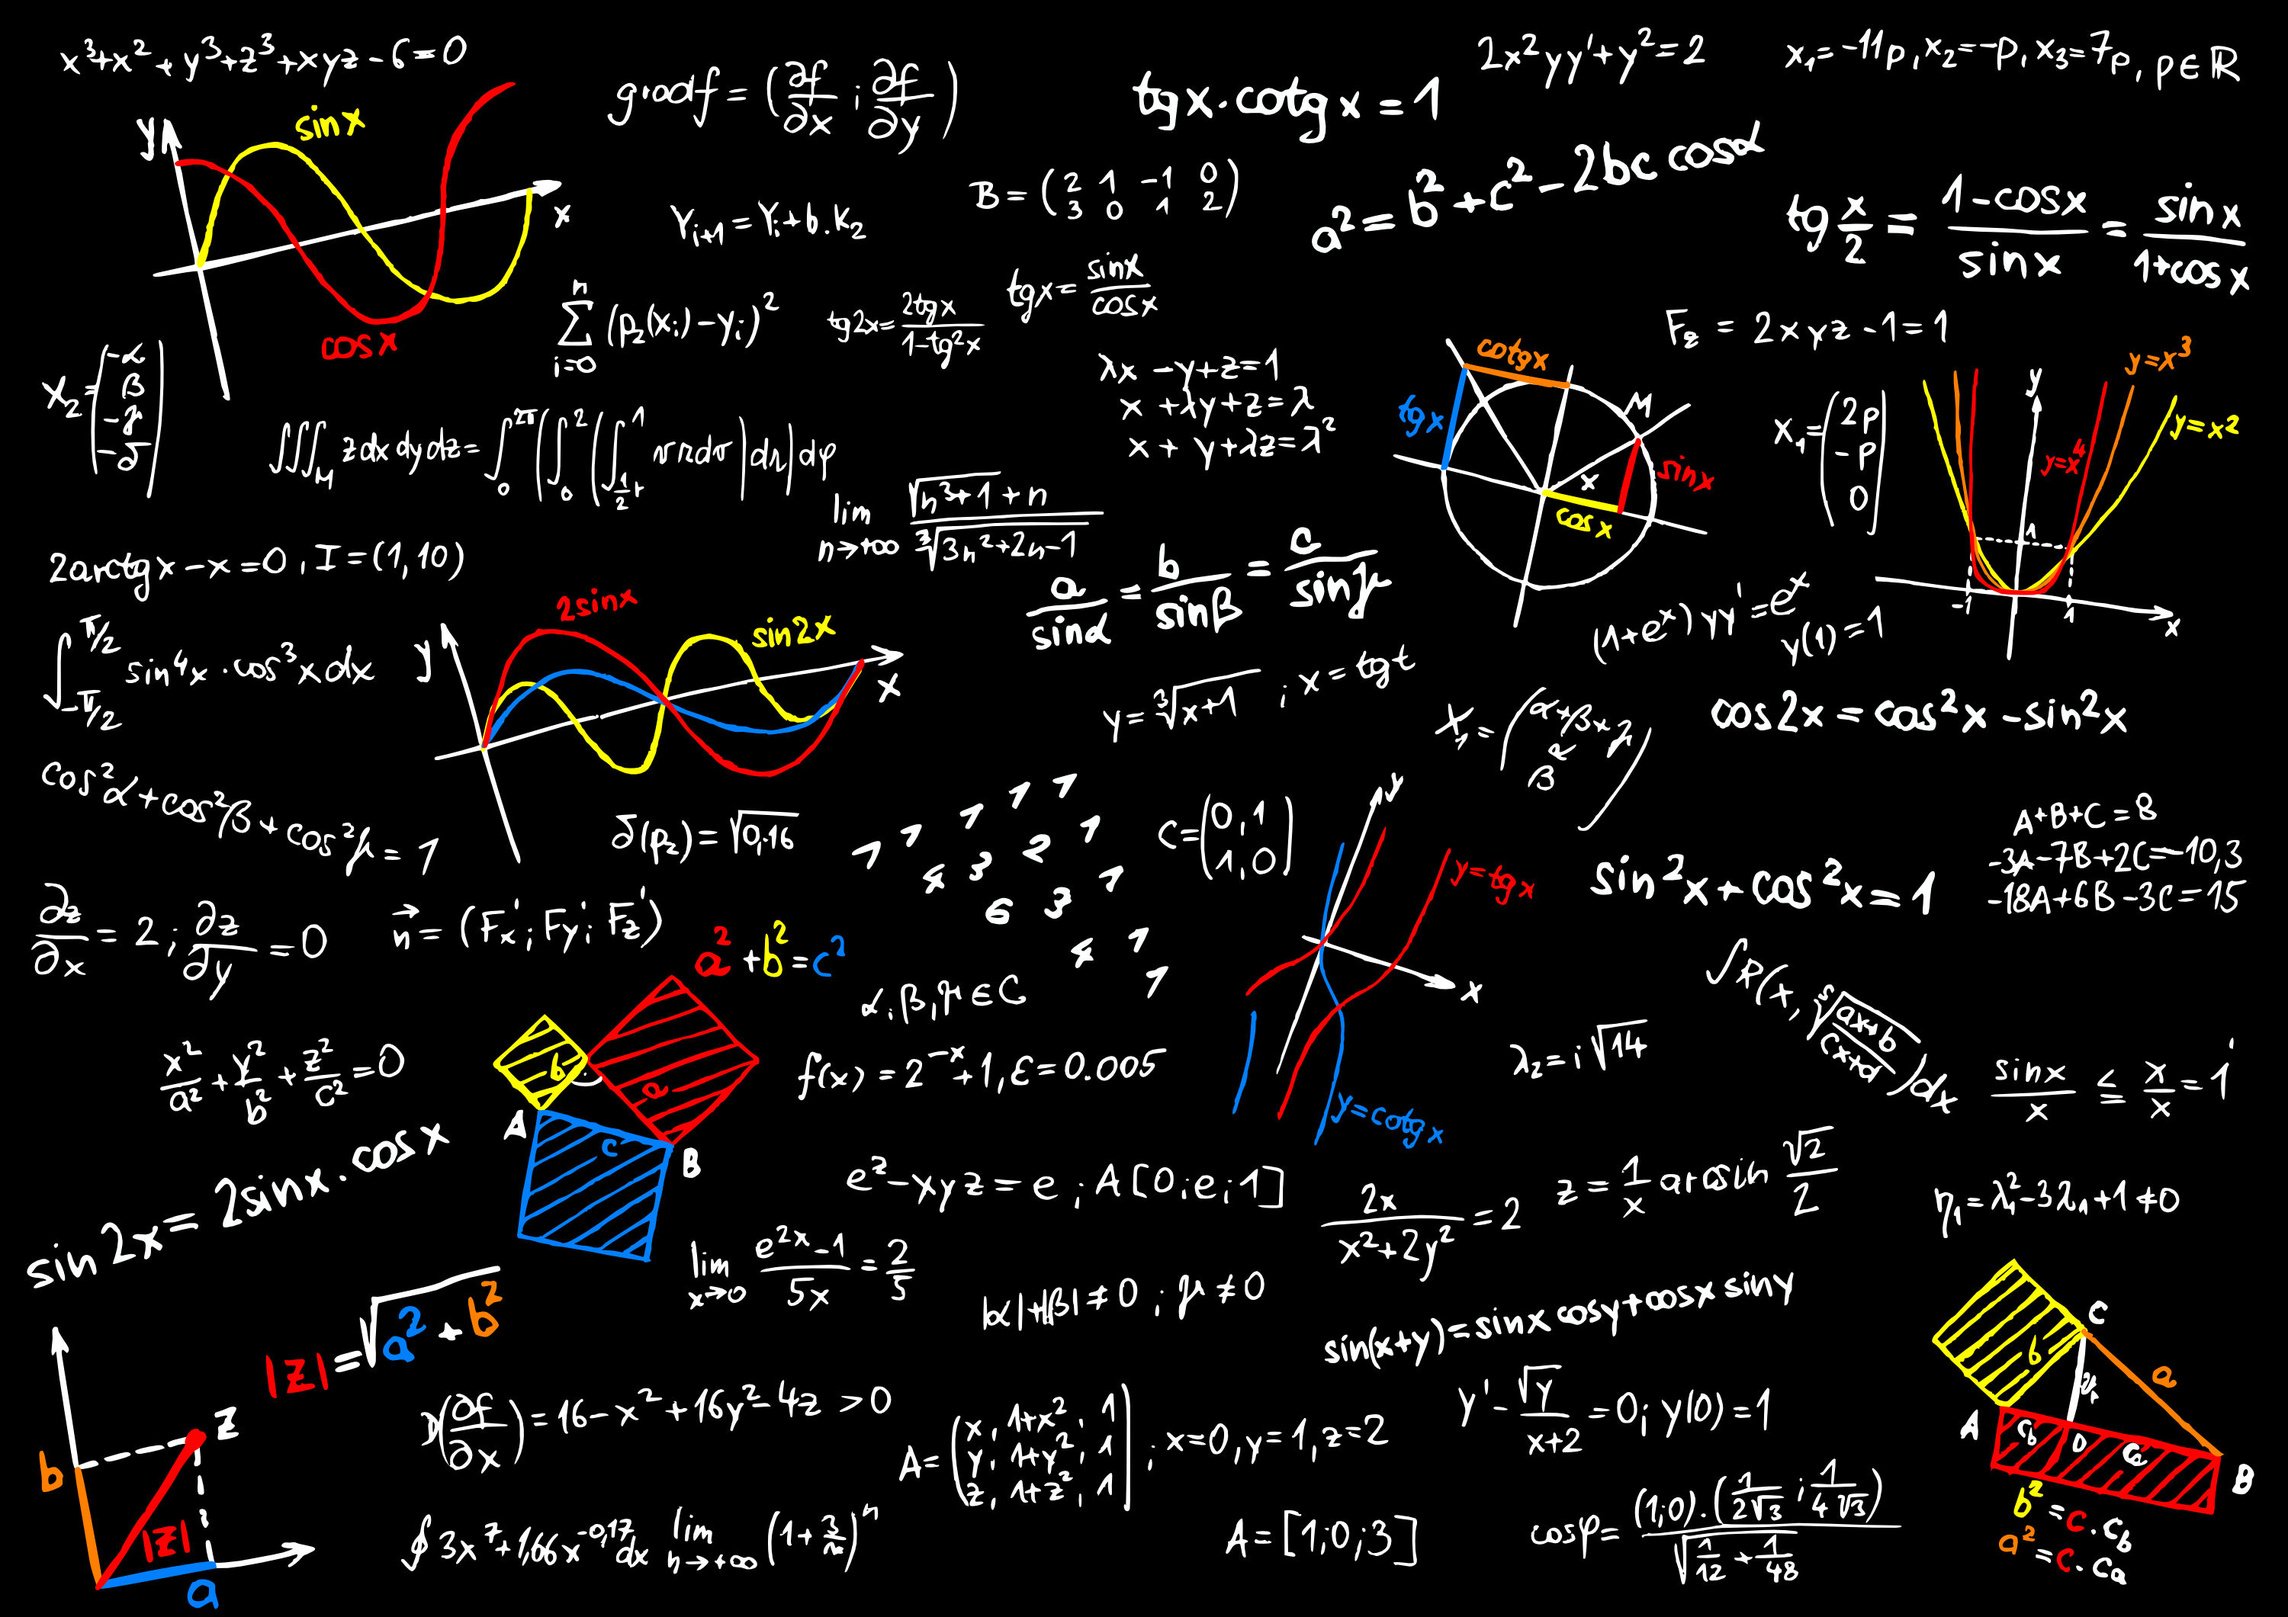 x³+x²+y³+z³+xyz-6=0
gradf = (∂f/∂x ; ∂f/∂y)
tgx·cotgx = 1
2x²yy'+y²=2
x₁=-11p, x₂=-p, x₃=7p, p∈ℝ
y
sinx
x
cosx
Yᵢ₊₁ = Yᵢ+b.K₂
B = (2 1 -1 0
3 0 1 2)
a² = b²+c²-2bc cosα
tg x/2 = (1-cosx)/sinx = sinx/(1+cosx)
X₂=(-α
β
-γ
-δ)
∑ i=0 n (p₂(xᵢ)-yᵢ)²
tg2x = 2tgx/(1-tg²x)
tgx = sinx/cosx
F_z = 2xyz-1=1
λx-y+z=1
x+λy+z=λ
x+y+λz=λ²
cotgx
tgx
M
sinx
x
cosx
X₁=(2p
-p
0)
y
y=x³
y=x²
y=x⁴
1
-1
1
x
∫∫∫_M zdxdydz = ∫₀^2π(∫₀²(∫_½r^1 vrdv)dr)dφ
lim n→+∞ (√(n³+1)+n)/∛(3n²+2n-1)
2arctgx-x=0, I=(1,10)
a/sinα = b/sinβ = c/sinγ
(1+eˣ)yy'=eˣ
y(1)=1
∫_-π/2^π/2 sin⁴x·cos³xdx
y
2sinx
sin2x
x
y=∛(x+1) ; x=tgt
X₁=(α+β+γ
α
β)
cos2x = cos²x-sin²x
cos²α+cos²β+cos²γ=1
δ(p₂)=√0,16
1 1 1 1 1
4 3 2 1
6 3 1
4 1
1
C=(0,1
1,0)
y
y=tgx
x
y=cotgx
sin²x+cos²x=1
A+B+C=8
-3A-7B+2C=-10,3
-18A+6B-3C=15
∂z/∂x=2 ; ∂z/∂y=0
n⃗=(F'x; F'y; F'z)
a²+b²=c²
b
a
A
c
B
α,β,γ∈C
∫R(x, ˢ√((ax+b)/(cx+d)))dx
x²/a²+y²/b²+z²/c²=0
f(x)=2⁻ˣ+1, ε=0.005
λ₂=i√14
sinx/x ≤ x/x = 1
sin2x=2sinx·cosx
e^z-xyz=e ; A[0;e;1]
2x/(x²+2y²)=2
z=1/x arcsin √2/2
η₁=λ₁²-3λ₁+1≠0
lim x→0 (e²ˣ-1)/5x = 2/5
|α|+|β|≠0 ; γ≠0
sin(x+y)=sinx cosy+cosx siny
|z|=√(a²+b²)
z
b
|z|
a
D(∂f/∂x)=16-x²+16y²-4z >0
A=(x, 1+x², 1
y, 1+y², 1
z, 1+z², 1) ; x=0, y=1, z=2
y'-√y/(x+2)=0 ; y(0)=1
C
b
a
A
c_b
D
c_a
B
b²=c·c_b
a²=c·c_a
∮3x⁷+1,66x^-0,17dx
lim n→+∞ (1+3/n)ⁿ
A=[1;0;3]
cosφ=(1;0)·(1/2√3 ; 1/4√3)/√(1/12+1/48)